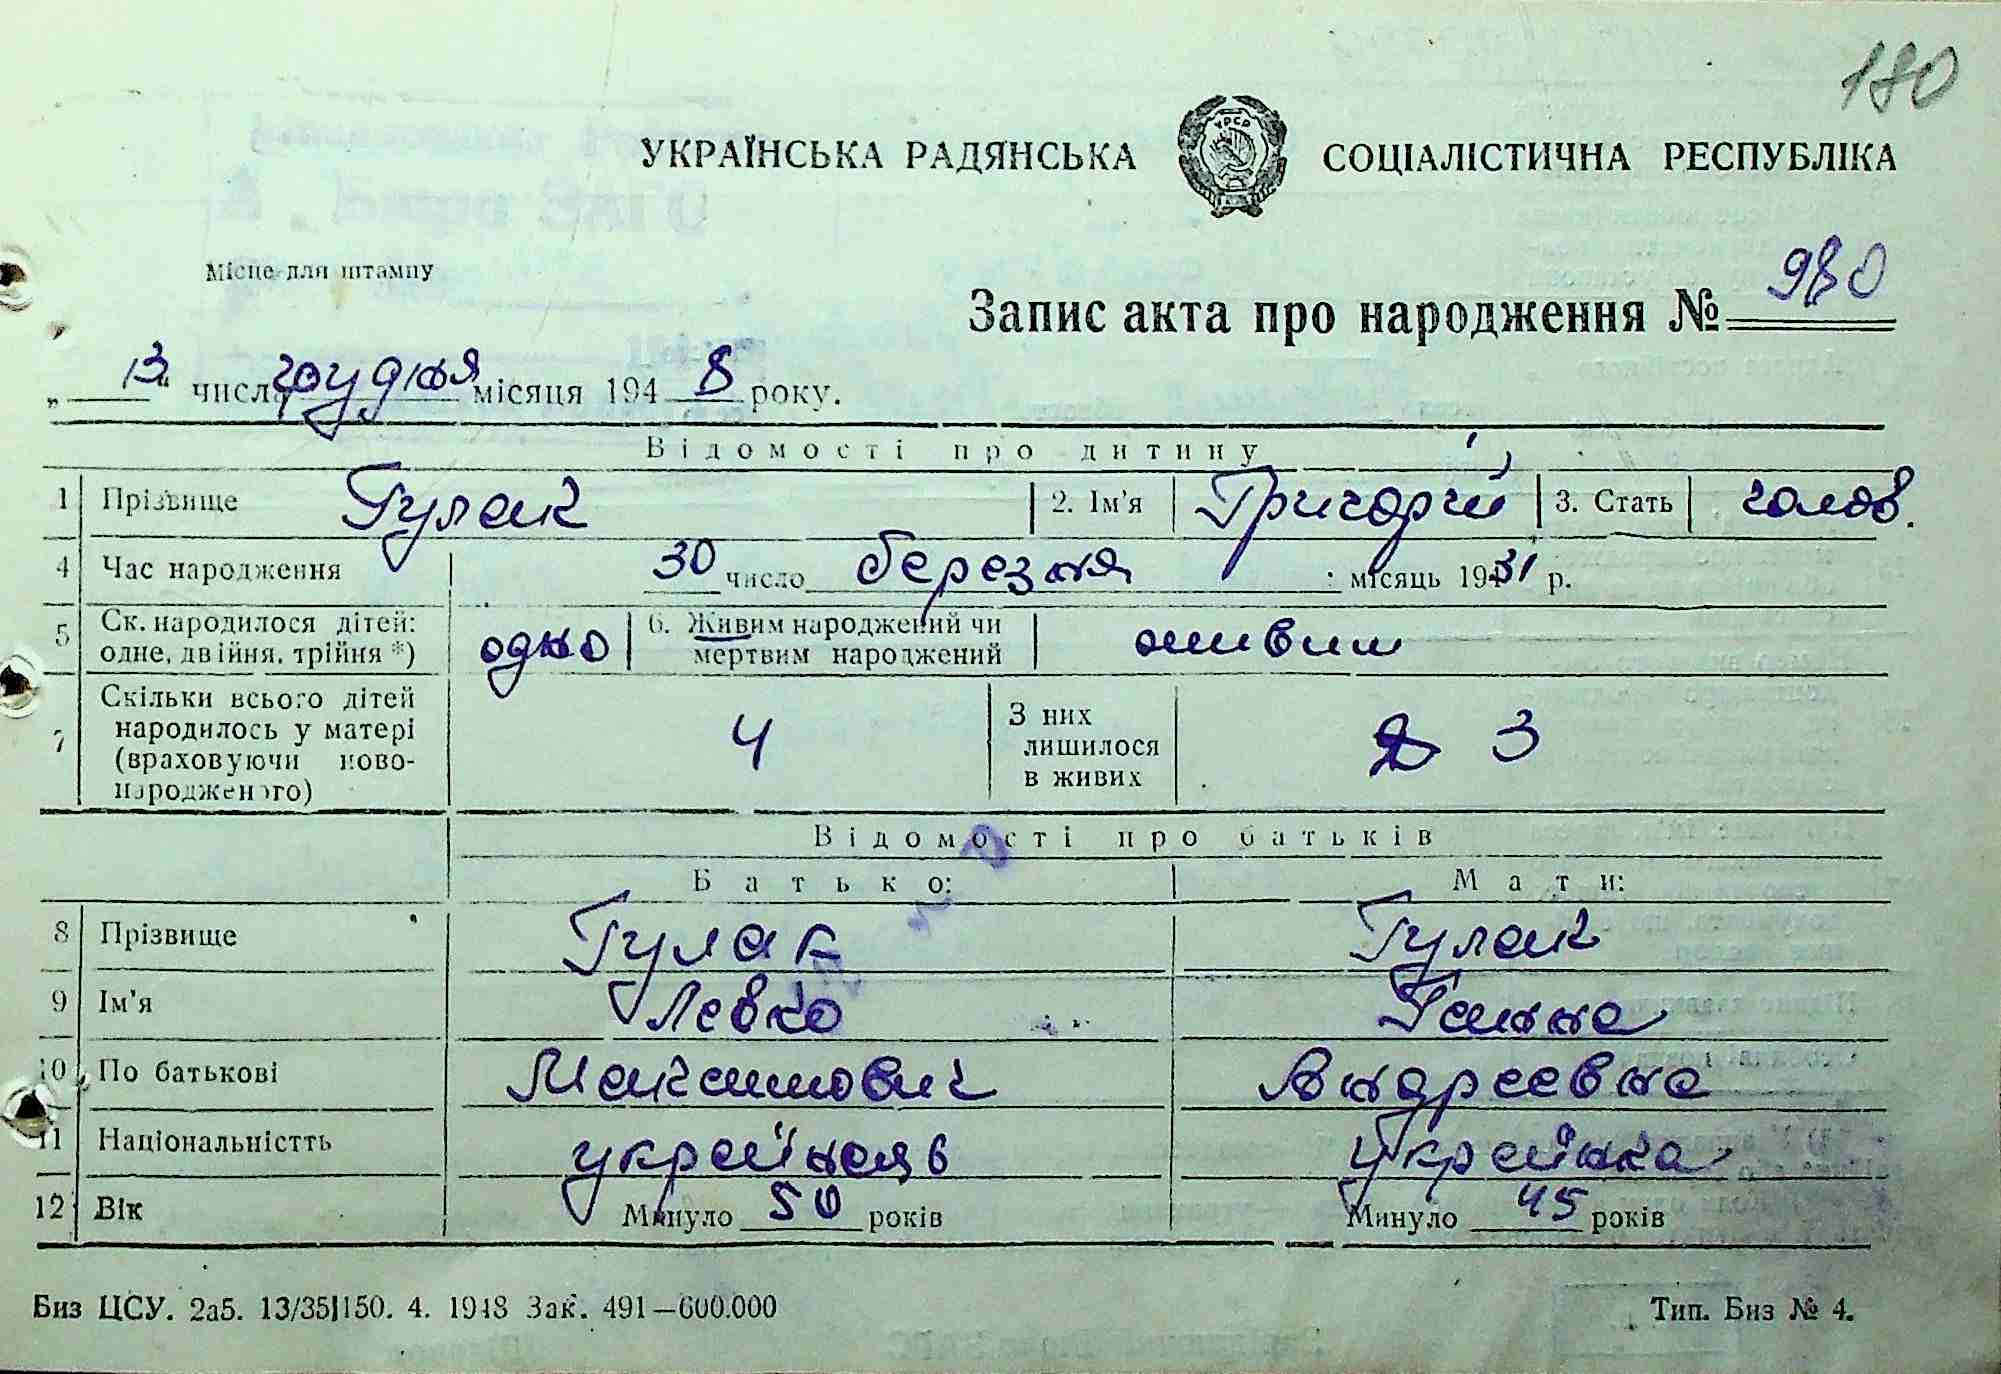 180
УКРАЇНСЬКА РАДЯНСЬКА СОЦІАЛІСТИЧНА РЕСПУБЛІКА
УРСР
Місце для штампу
Запис акта про народження № 980
„ 13 “ числа грудня місяця 1948 року.
Відомості про дитину
1 Прізвище Гулак 2. Ім'я Григорій 3. Стать чолов.
4 Час народження 30 число березня місяць 1931 р.
5 Ск. народилося дітей: одне, двійня, трійня *) одно 6. Живим народжений чи мертвим народжений живим
7 Скільки всього дітей народилось у матері (враховуючи новонародженого) 4 З них лишилося в живих 3
Відомості про батьків
Батько: Мати:
8 Прізвище Гулак Гулак
9 Ім'я Левко Ганна
10 По батькові Максимович Андреевна
11 Національністть українець Українка
12 Вік Минуло 50 років Минуло 45 років
Биз ЦСУ. 2а5. 13/35|150. 4. 1948 Зак. 491—600.000 Тип. Биз № 4.